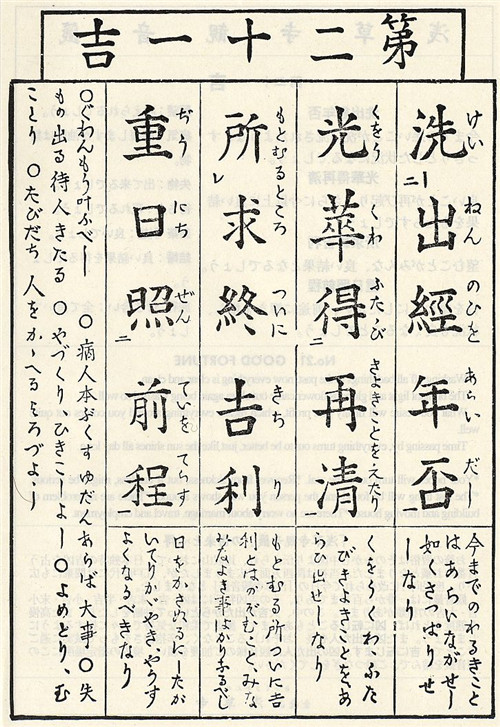 第二十一吉
洗出經年否
けい ねん のひを あらい だす
今までのわるきこと
はあらいながせし
如くさつぱりせ
しなり
光華得再清
くわう くわ ふたゝび きよきことをえたり
くわうくわふた
ゝびきよきことをあ
らひ出せしなり
所求終吉利
もとむるところ ついに きち り
もとむる所ついに吉
利とはのぞむことみな
みなよき事
重日照前程
ぢう にち ぜん ていを てらす
日をかさぬるにしたが
いてりかゞやきやうす
よくなるべきなり
○ぐわんもう叶ふべし ○病人本ぶくすゆだんあらば大事 ○失
もの出る待人きたる ○やづくりひきこしよし ○よめどり、む
ことり ○たびだち 人をかゝへるよろづよし